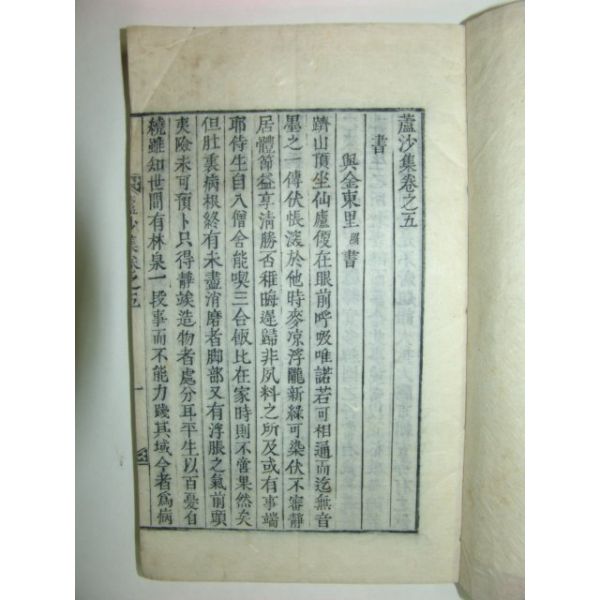 蘆沙集卷之五
書
與金東里 書
躋山頂坐仙廬僾在眼前呼吸唯諾若可相通而迄無音
墨之一傳伏悵深於他時麥凉浮隴新綠可染伏不審靜
居體節益享清勝否稚晦遲歸非夙料之所及或有事端
耶侍生自入僧舍能喫三合飯比在家時則不啻果然矣
但肚裏病根終有未盡消磨者脚部又有浮脹之氣前頭
夷險未可預卜只得靜竢造物者處分耳平生以百憂自
繞雖知世間有林泉一段事而不能力踐其域今者爲病
蘆沙集卷之五
一